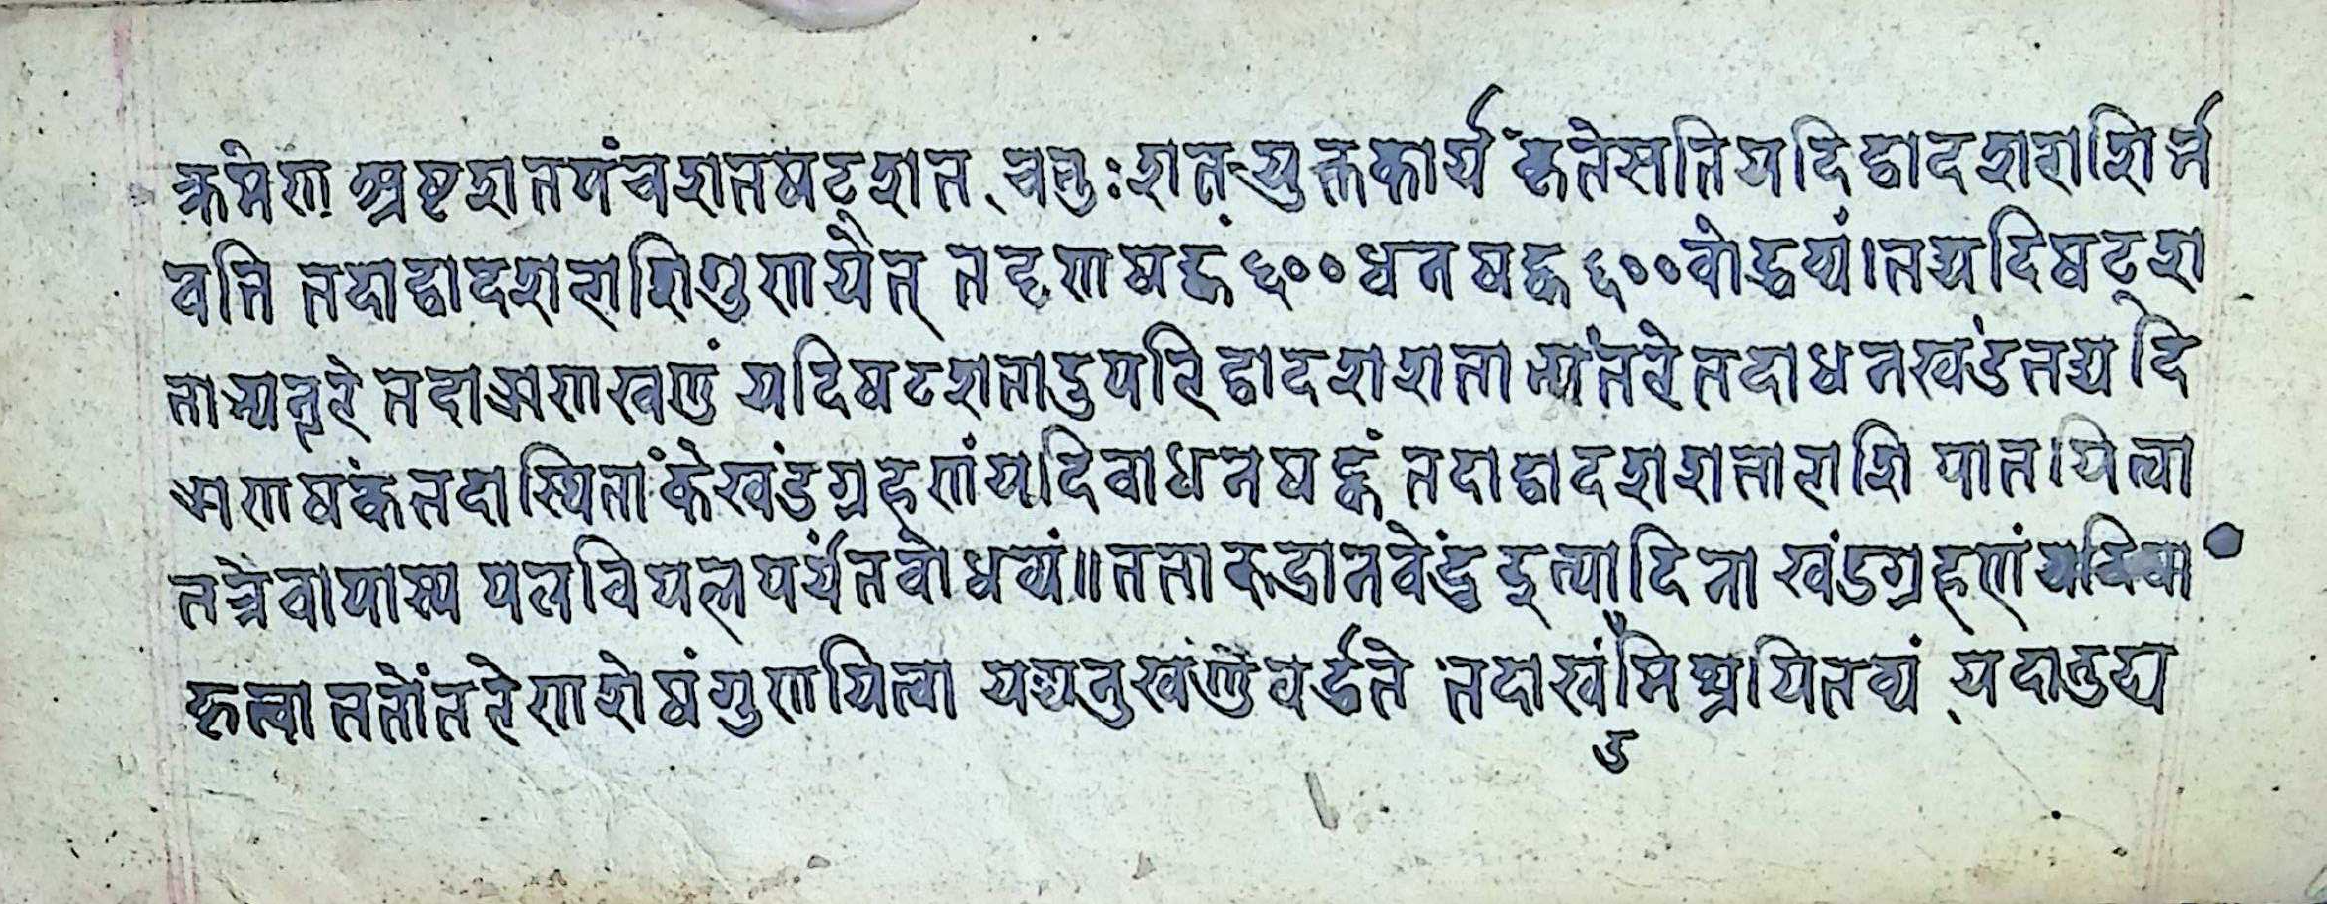 क्रमेण अष्टशतपंचशतषट्शत चतुःशतयुक्तकार्यं कृतेसतियदिद्वादशराशिर्भ
वति तदाद्वादशराशिशुणयेत् तदृणषट्कं ६०० धनषट्क ६०० वोद्धव्यं।तद्यदिषट्श
ताभ्यन्तरे तदाऋणखण्डं यदिषटशतादुपरिद्वादशशताभ्यंतरेतदाधनखंडंतद्यदि
ऋणषंकंतदास्थितांकेखंडग्रहणंयदिवाधनषट्कं तदाद्वादशशताराशि पातयित्वा
तत्रैवापास्य पलविपलपर्यंतवोधव्यं॥ततारुद्रानवेंद्रुइत्यादिना खंडग्रहणं
कृत्वा ततोंतरेणशेषंगुणयित्वा यद्यनुखण्डवर्द्धते तदाखंडमिश्रयितव्यं यदानुह्य